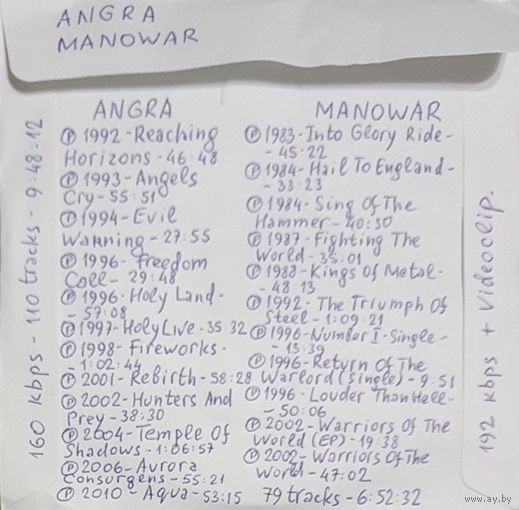 ANGRA
MANOWAR
160 kbps - 110 tracks - 9:48:12
ANGRA
Ⓟ 1992 - Reaching
Horizons - 46:48
Ⓟ 1993 - Angels
Cry - 55:51
Ⓟ 1994 - Evil
Warning - 27:55
Ⓟ 1996 - Freedom
Call - 29:48
Ⓟ 1996 - Holy Land -
- 57:08
Ⓟ 1997 - Holy Live - 35:32
Ⓟ 1998 - Fireworks -
- 1:02:44
Ⓟ 2001 - Rebirth - 58:28
Ⓟ 2002 - Hunters And
Prey - 38:30
Ⓟ 2004 - Temple Of
Shadows - 1:06:57
Ⓟ 2006 - Aurora
Consurgens - 55:21
Ⓟ 2010 - Aqua - 53:15
MANOWAR
Ⓟ 1983 - Into Glory Ride -
- 45:22
Ⓟ 1984 - Hail To England -
- 33:23
Ⓟ 1984 - Sing Of The
Hammer - 40:30
Ⓟ 1987 - Fighting The
World - 35:01
Ⓟ 1988 - Kings Of Metal -
- 48:13
Ⓟ 1992 - The Triumph Of
Steel - 1:09:21
Ⓟ 1996 - Number I - Single -
- 13:39
Ⓟ 1996 - Return Of The
Warlord (Single) - 9:51
Ⓟ 1996 - Louder Than Hell -
- 50:06
Ⓟ 2002 - Warriors Of The
World (EP) - 19:38
Ⓟ 2002 - Warriors Of The
World - 47:02
79 tracks - 6:52:32
192 kbps + Videoclip.
www.ay.by